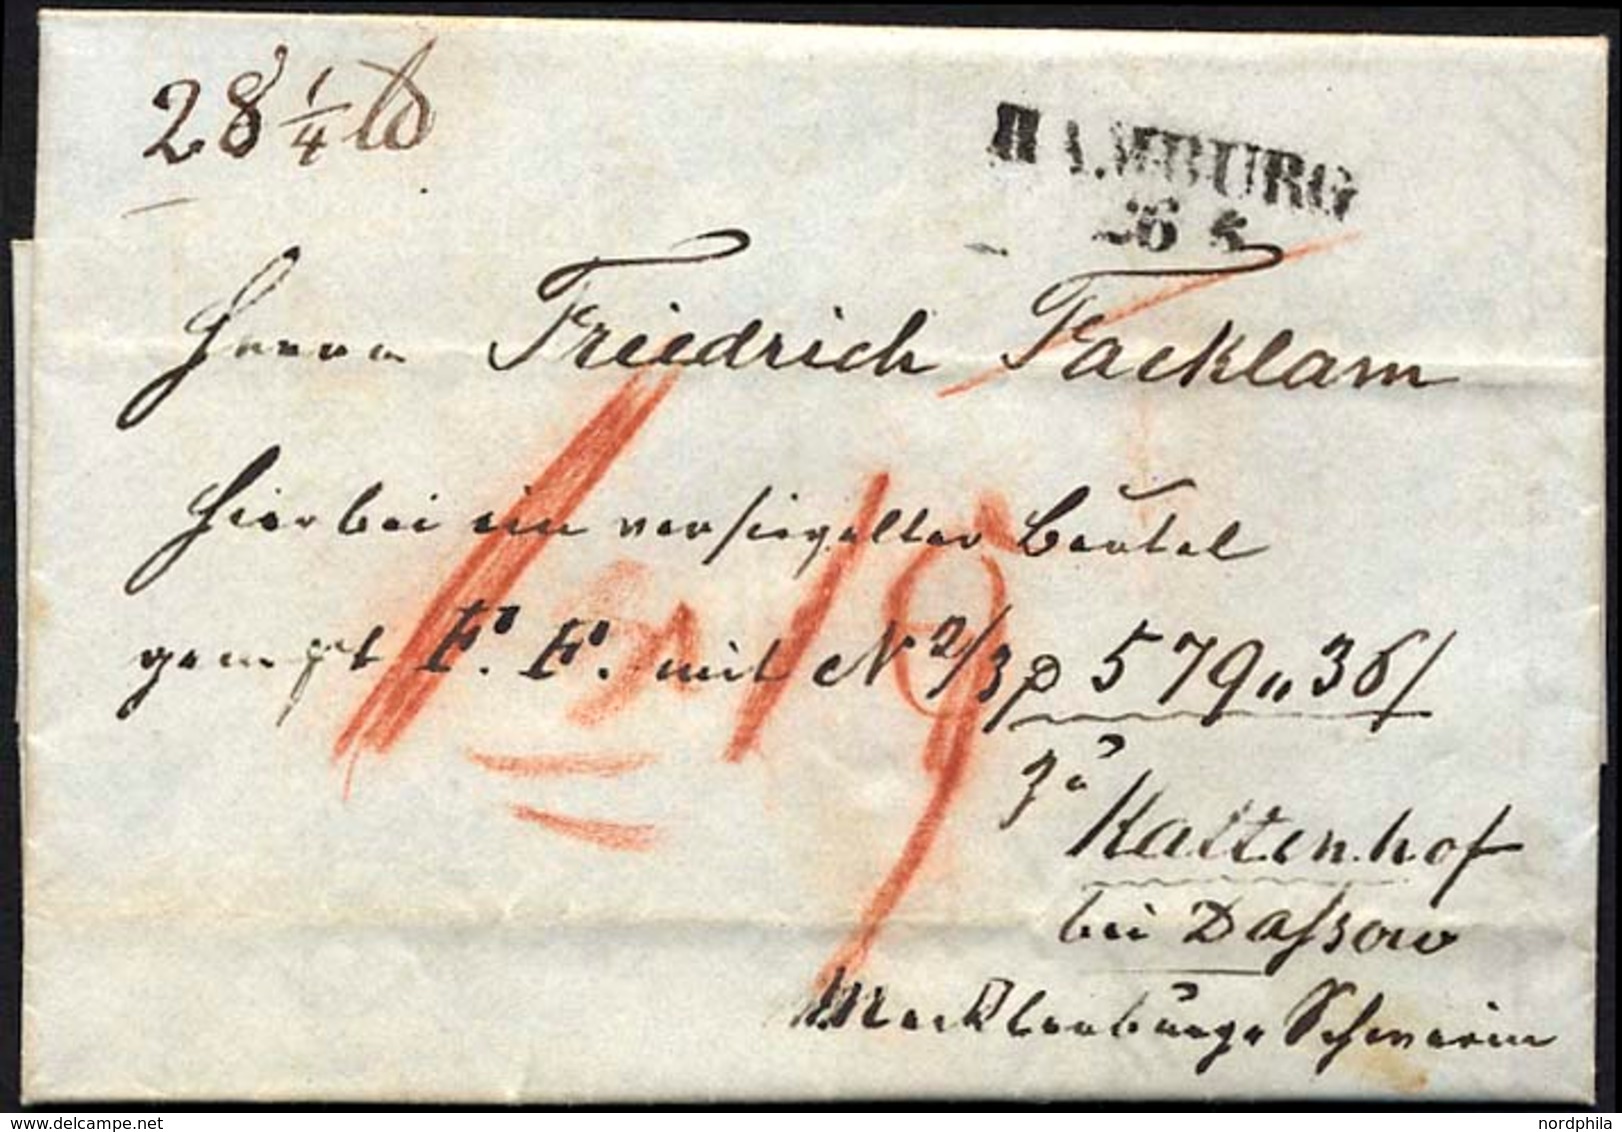 28 1/4 ℔
HAMBURG
26 5
Herrn Friedrich Facklam
Hierbei ein versiegelter Beutel
gempt F. F. mit N 2/3 p 579 " 36/
zu
Kaltenhof
bei Dassow
Mecklenburg Schwerin
19
nordphila